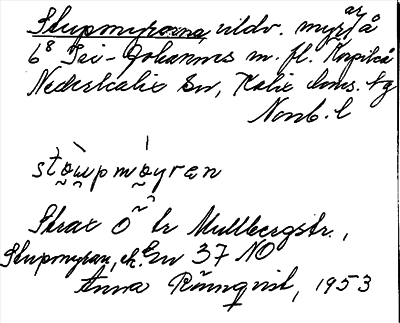 Stupmyrorna, uildv. myrar å
6⁸ Pei-Johannes m. fl. Korpikå
Nederkalix sn, Kalix doms. tg
Norrb. l
stòu̯pmòyran
Strax Ö br Mullbergstr.,
Stupmyran, ek. En 37 NO
Anna Rönnqvist, 1953